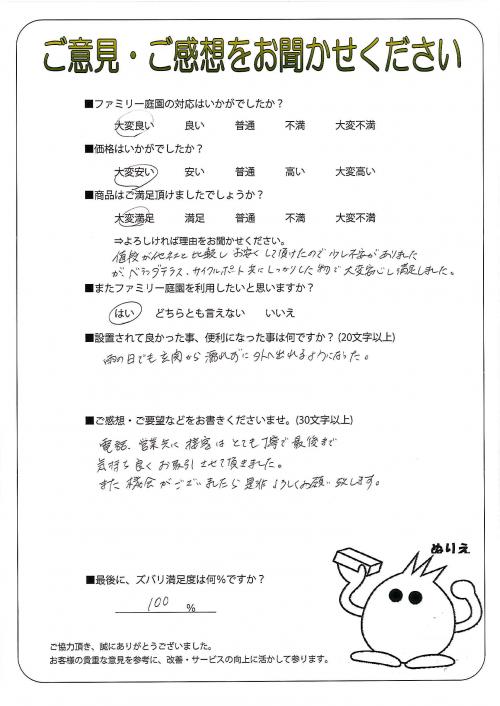 ご意見・ご感想をお聞かせください
■ファミリー庭園の対応はいかがでしたか？
大変良い 良い 普通 不満 大変不満
■価格はいかがでしたか？
大変安い 安い 普通 高い 大変高い
■商品はご満足頂けましたでしょうか？
大変満足 満足 普通 不満 大変不満
⇒よろしければ理由をお聞かせください。
値段が他社と比較しお安くして頂けたので少し不安がありました
が、ベランダテラス、サイクルポート共にしっかりした物で大変安心し満足しました。
■またファミリー庭園を利用したいと思いますか？
はい どちらとも言えない いいえ
■設置されて良かった事、便利になった事は何ですか？(20文字以上)
雨の日でも玄関から濡れずに外へ出れるようになった。
■ご感想・ご要望などをお書きくださいませ。(30文字以上)
電話、営業共に接客はとても丁寧で最後まで
気持ち良くお取引させて頂きました。
また機会がございましたら是非よろしくお願い致します。
ぬりえ
■最後に、ズバリ満足度は何％ですか？
100 %
ご協力頂き、誠にありがとうございました。
お客様の貴重な意見を参考に、改善・サービスの向上に活かして参ります。